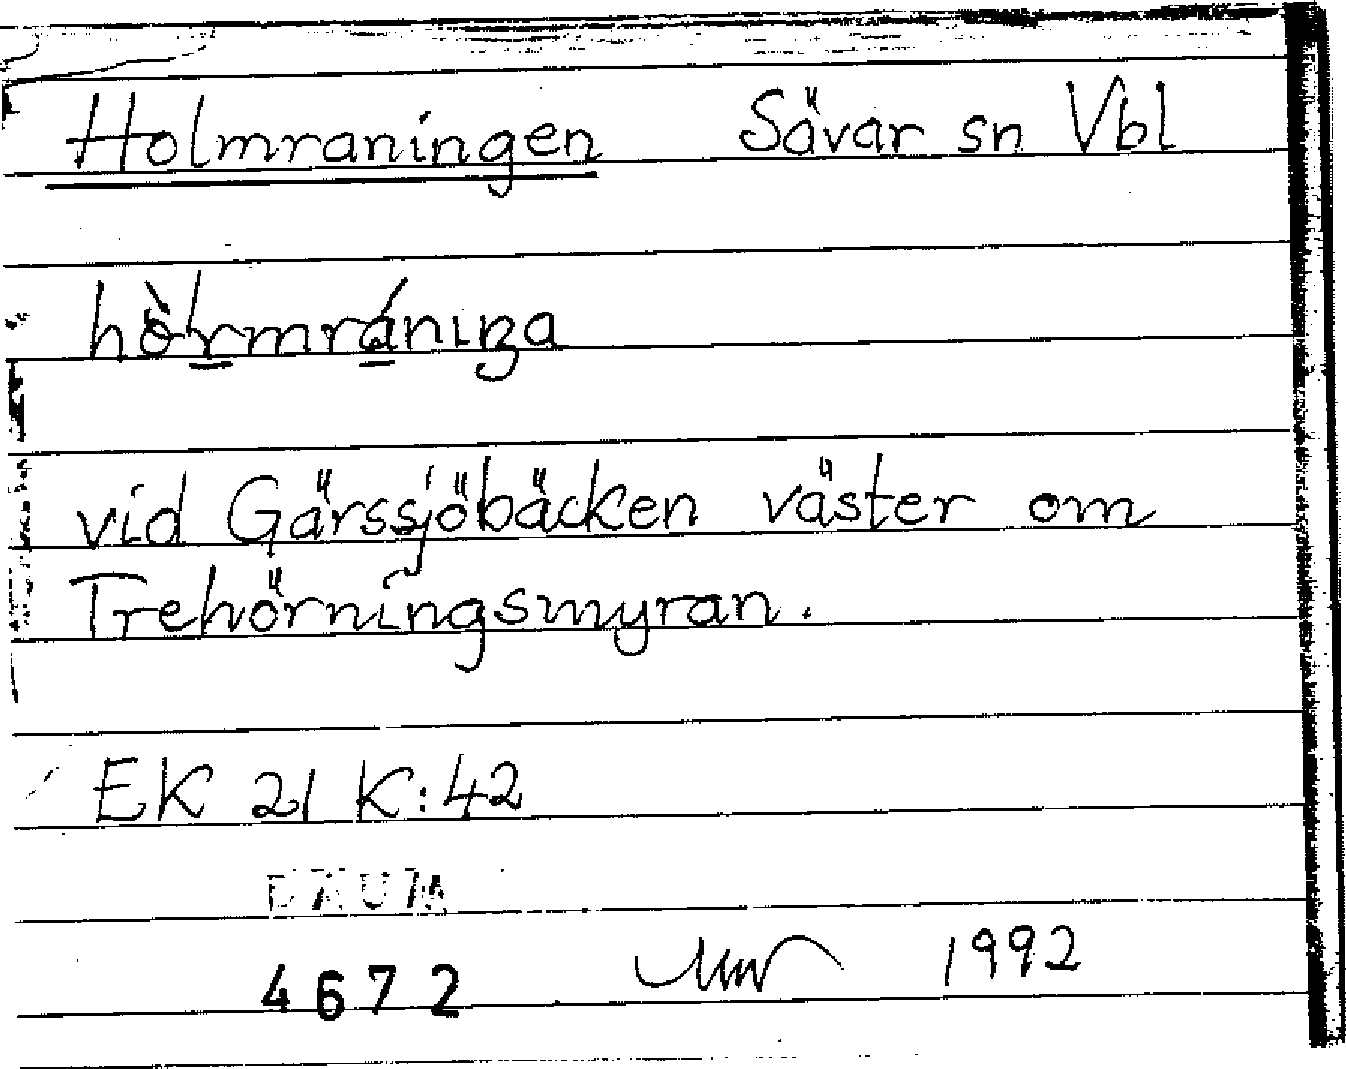 Holmraningen Sävar sn Vbl
vid Gärssjöbäcken väster om
Trehörningsmyran.
EK 21 K:42
DAUM
4672 1992